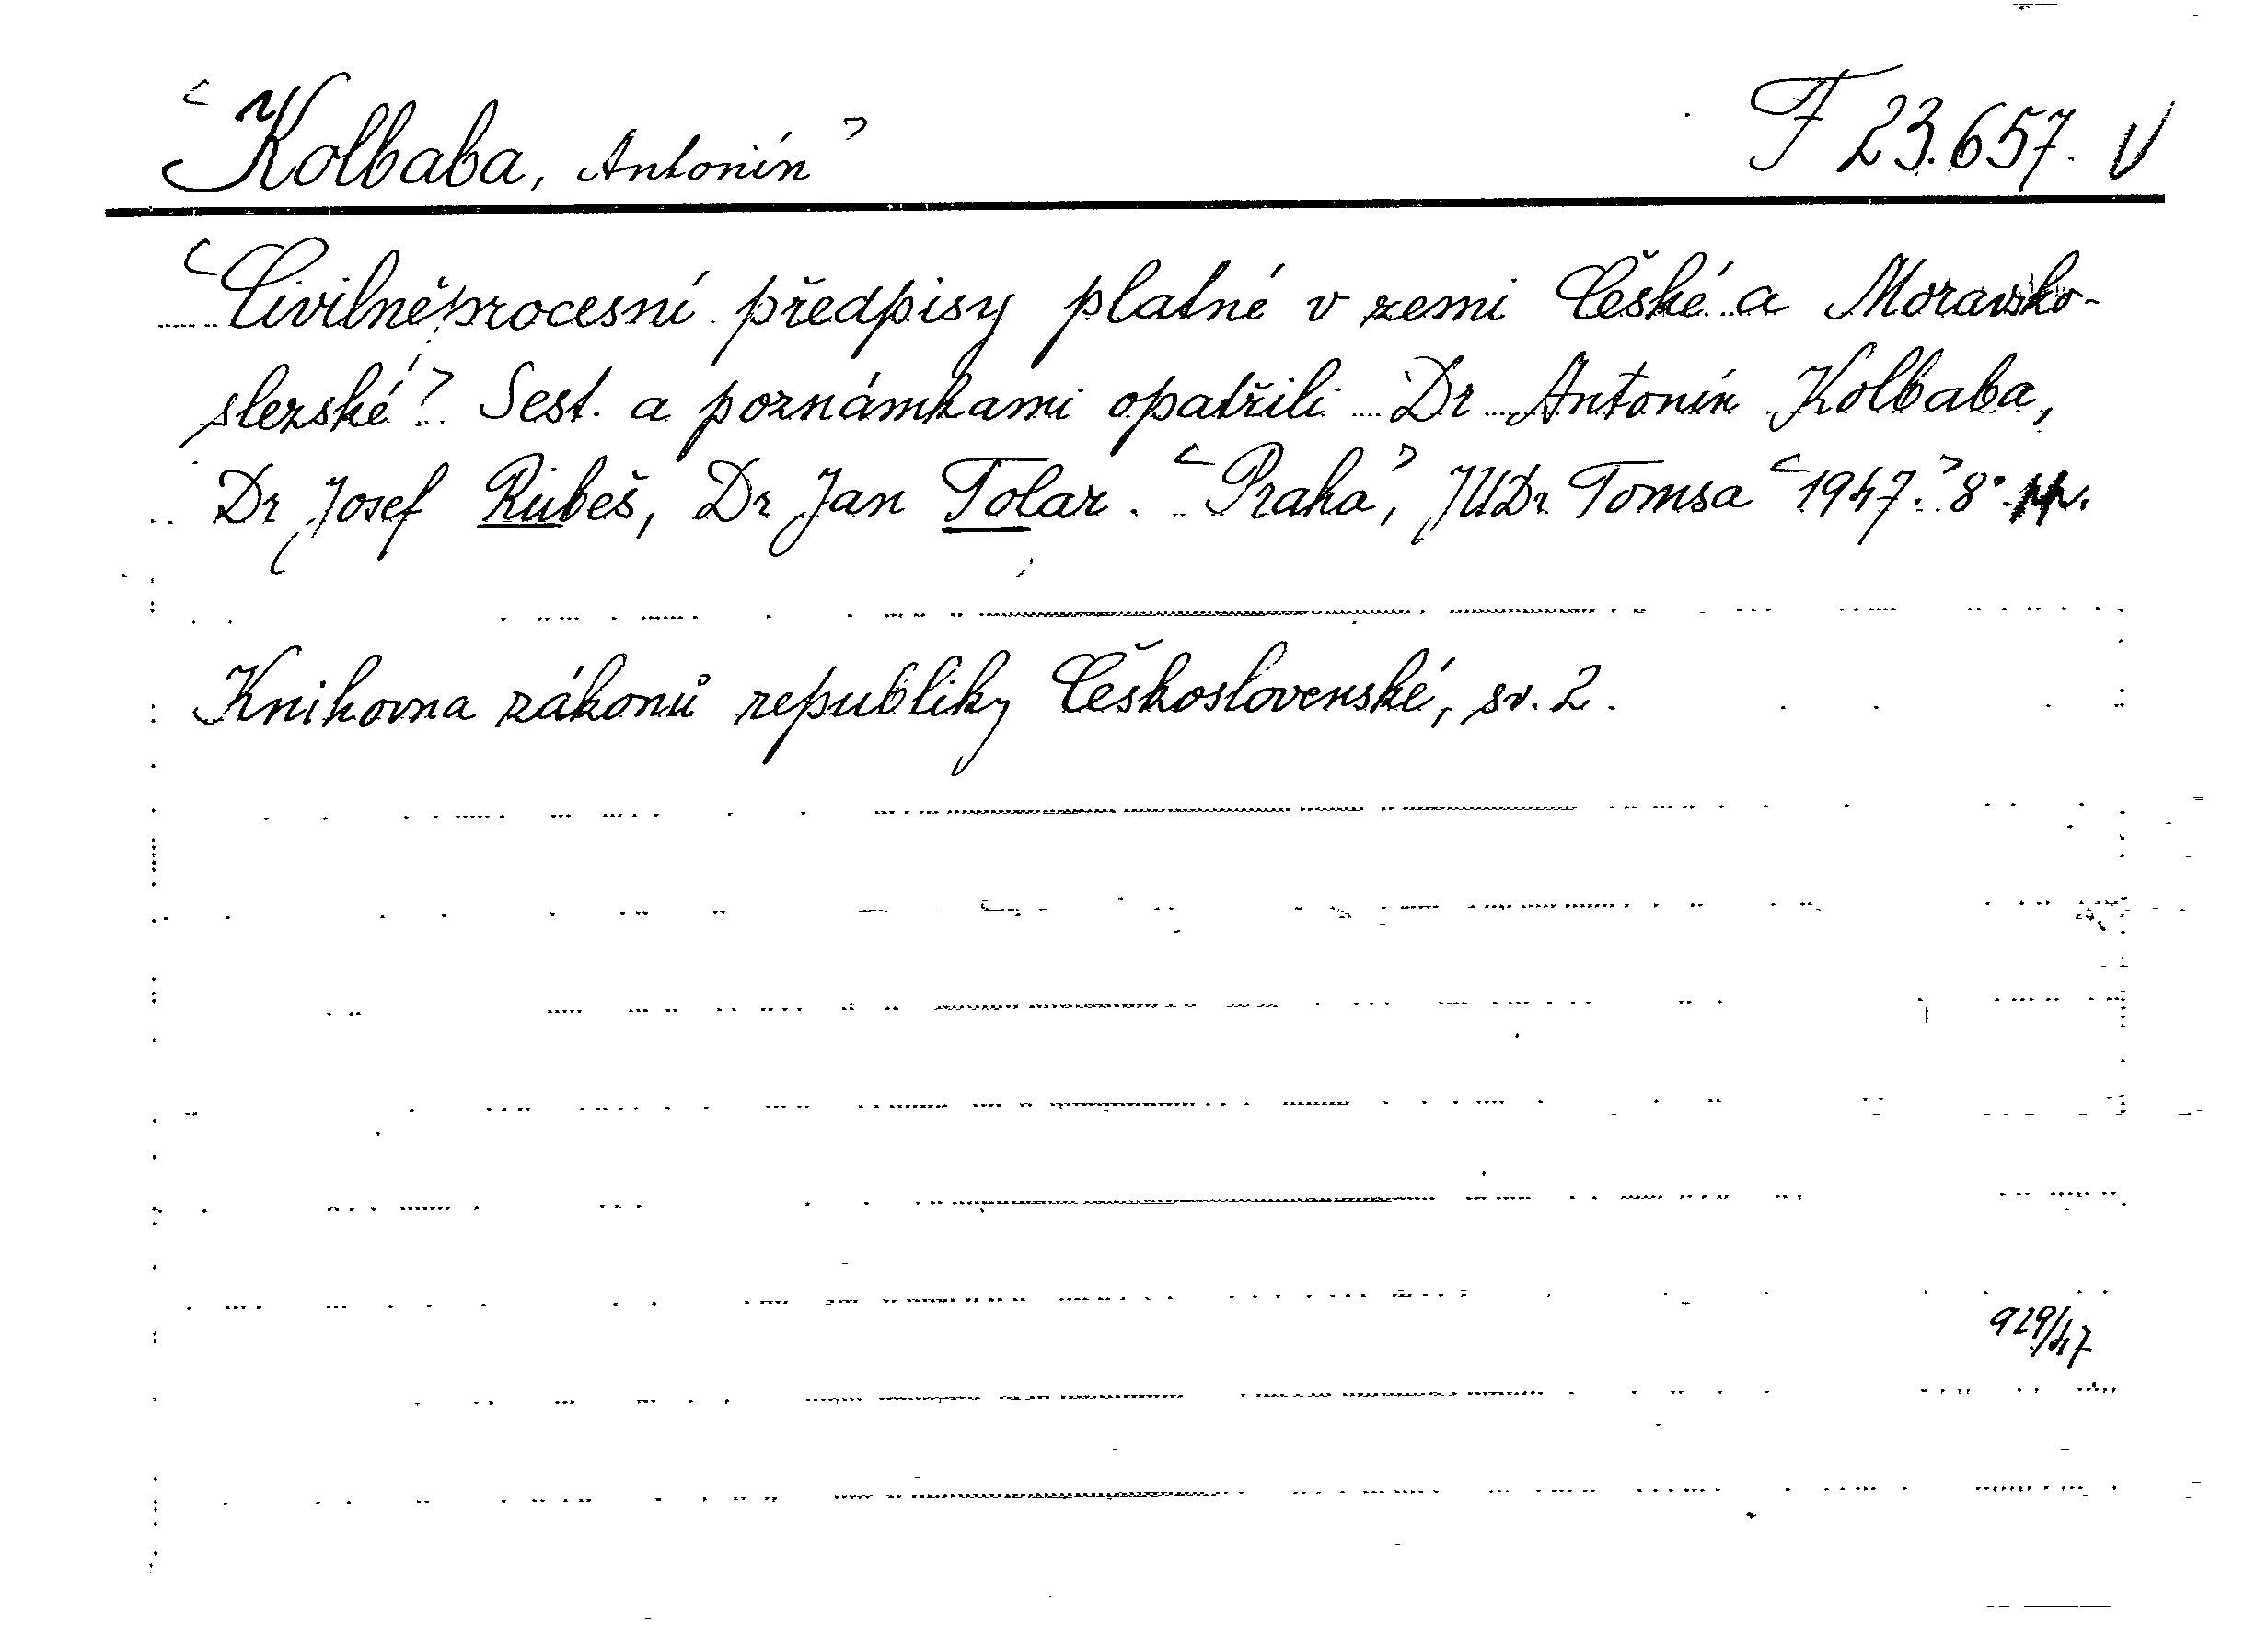 Kolbaba, Antonín F 23.657. V
Civilněprocesní předpisy platné v zemi České a Moravsko-
slezské. Sest. a poznámkami opatřili Dr Antonín Kolbaba,
Dr Josef Rubeš, Dr Jan Tolar. Praha, JUDr Tomsa 1947. 8°.
Knihovna zákonů republiky Československé, sv. 2.
929/47